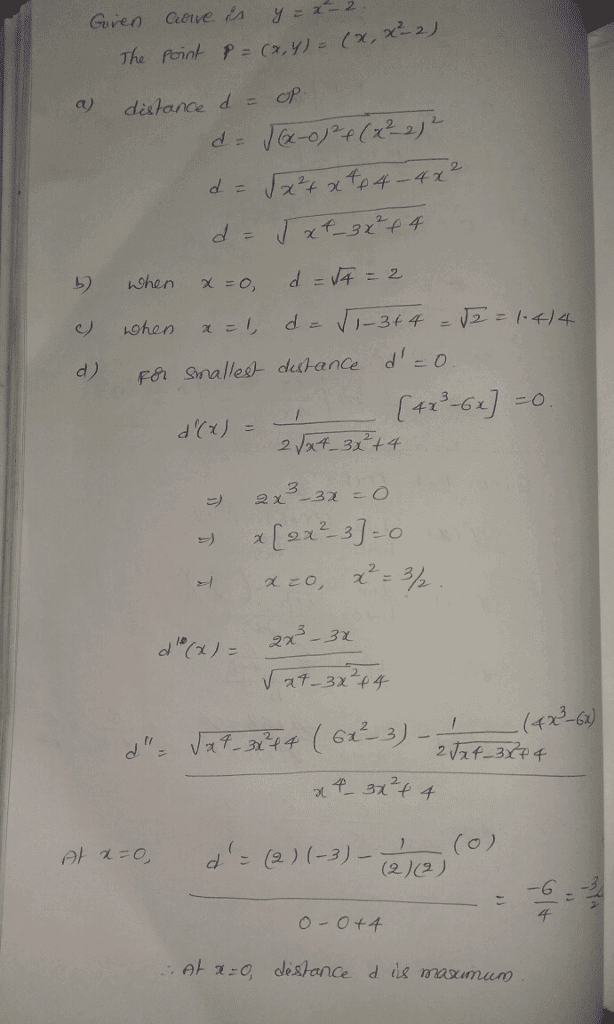 Given curve is y = x²-2.
The point P = (x,y) = (x, x²-2)
a) distance d = OP.
d = √(x-0)²+(x²-2)²
d = √x²+x⁴+4-4x²
d = √x⁴-3x²+4
b) when x=0, d = √4 = 2
c) when x=1, d = √1-3+4 = √2 = 1.414
d) For smallest distance d' = 0.
d'(x) = 1/(2√x⁴-3x²+4) [4x³-6x] = 0.
⇒ 2x³-3x = 0
⇒ x[2x²-3] = 0
⇒ x=0, x² = 3/2.
d'(x) = (2x³-3x)/(√x⁴-3x²+4)
d" = (√x⁴-3x²+4 (6x²-3) - 1/(2√x⁴-3x²+4) (4x³-6x))/(x⁴-3x²+4)
At x=0, d' = ((2)(-3) - 1/((2)(2)) (0))/(0-0+4) = -6/4 = -3/2
∴ At x=0, distance d is maximum.